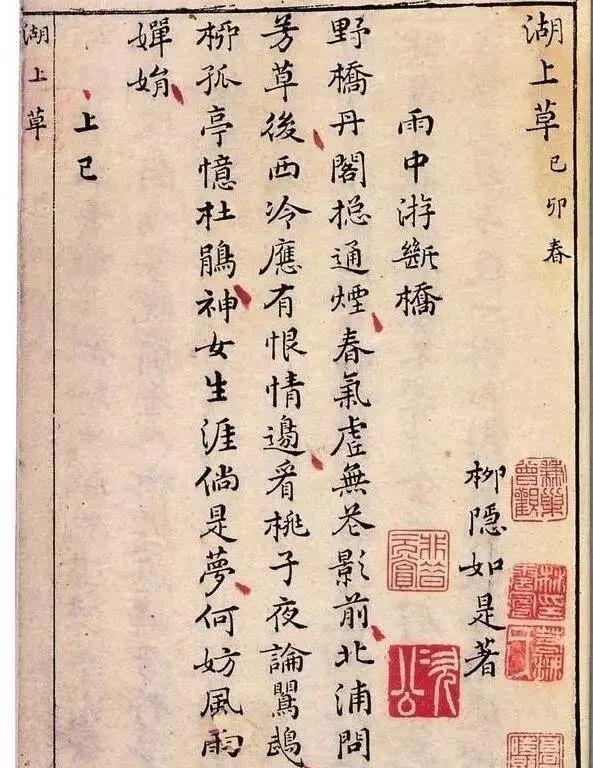 湖上草 己卯春
柳隱如是著
雨中游斷橋
野橋丹閣捴通煙春氣虛無芲影前北浦問
芳草後西冷應有恨情邊看桃子夜論鸎鵡
柳孤亭憶杜鵑神女生涯倘是夢何妨風雨
嬋娟
上巳
湖上草